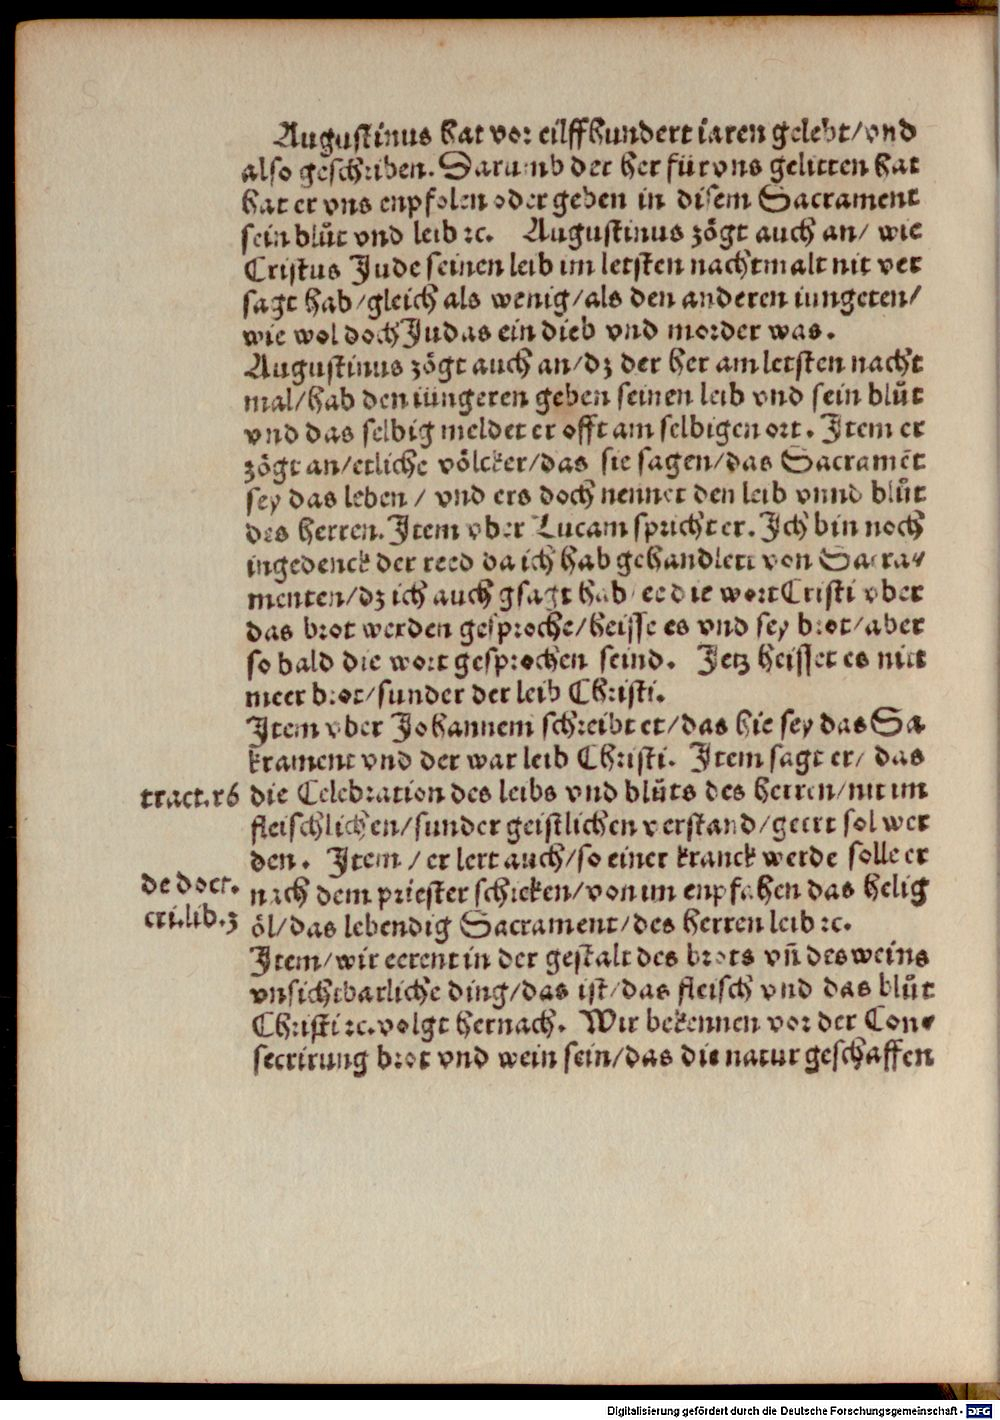 Augustinus hat vor eilffhundert iaren gelebt/vnd
also geschriben. Darumb der her für vns gelitten hat
hat er vns enpfolen oder geben in disem Sacrament
sein blůt vnd leib ꝛc. Augustinus zögt auch an/ wie
Cristus Jude seinen leib im letsten nachtmalt nit ver
sagt hab/gleich als wenig/als den anderen iungeren/
wie wol doch Judas ein dieb vnd morder was.
Augustinus zögt auch an/dz der her am letsten nacht
mal/hab den iüngeren geben seinen leib vnd sein blůt
vnd das selbig meldet er offt am selbigen ort. Item er
zögt an/etliche völcker/das sie sagen/das Sacramēt
sey das leben/ vnd ers doch nennet den leib vnnd blůt
des herren. Item vber Lucam spricht er. Ich bin noch
ingedenck der reed da ich hab gehandlett von Sacra⸗
menten/dz ich auch gsagt hab/ee die wort Cristi vber
das brot werden gesproche/heisse es vnd sey brot/aber
so bald die wort gesprochen seind. Jetz heisset es nitt
meer brot/sunder der leib Christi.
Item vber Johannem schreibt er/das hie sey das Sa⸗
krament vnd der war leib Christi. Item sagt er/ das
tract.26 die Celebration des leibs vnd blůts des herren/nit im
fleischlichen/sunder geistlichen verstand/geert sol wer
den. Item/ er lert auch/so einer kranck werde solle er
de doct. nach dem priester schicken/von im enpfahen das helig
cri.lib.3 öl/das lebendig Sacrament/des herren leib ꝛc.
Item/wir eerent in der gestalt des brots vñ des weins
vnsichtbarliche ding/das ist/das fleisch vnd das blůt
Christi ꝛc. volgt hernach. Wir bekennen vor der Con⸗
secrirung brot vnd wein sein/das die natur geschaffen
Digitalisierung gefördert durch die Deutsche Forschungsgemeinschaft - DFG